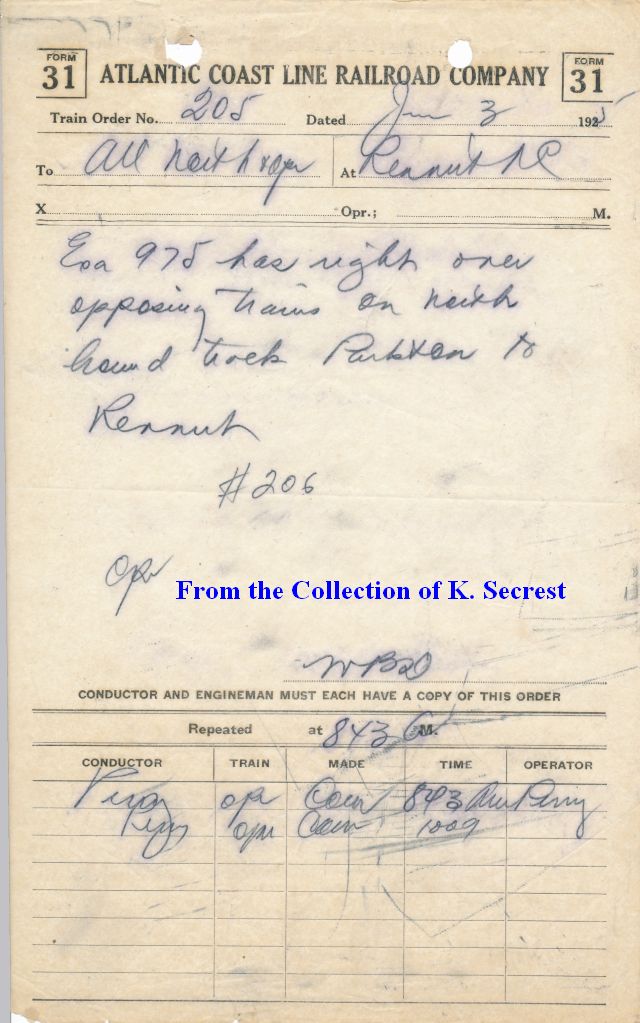 FORM 31 ATLANTIC COAST LINE RAILROAD COMPANY FORM 31
Train Order No. 205 Dated Jun 3 1925
To All North & opr At Rennut NC
X Opr.; M.
Exa 975 has right over
opposing trains on north
bound track Parkton to
Rennut
#206
Opr
From the Collection of K. Secrest
CONDUCTOR AND ENGINEMAN MUST EACH HAVE A COPY OF THIS ORDER
Repeated at 843 A M.
CONDUCTOR TRAIN MADE TIME OPERATOR
Perry opr Com 843 Am Perry
opr Com 1009